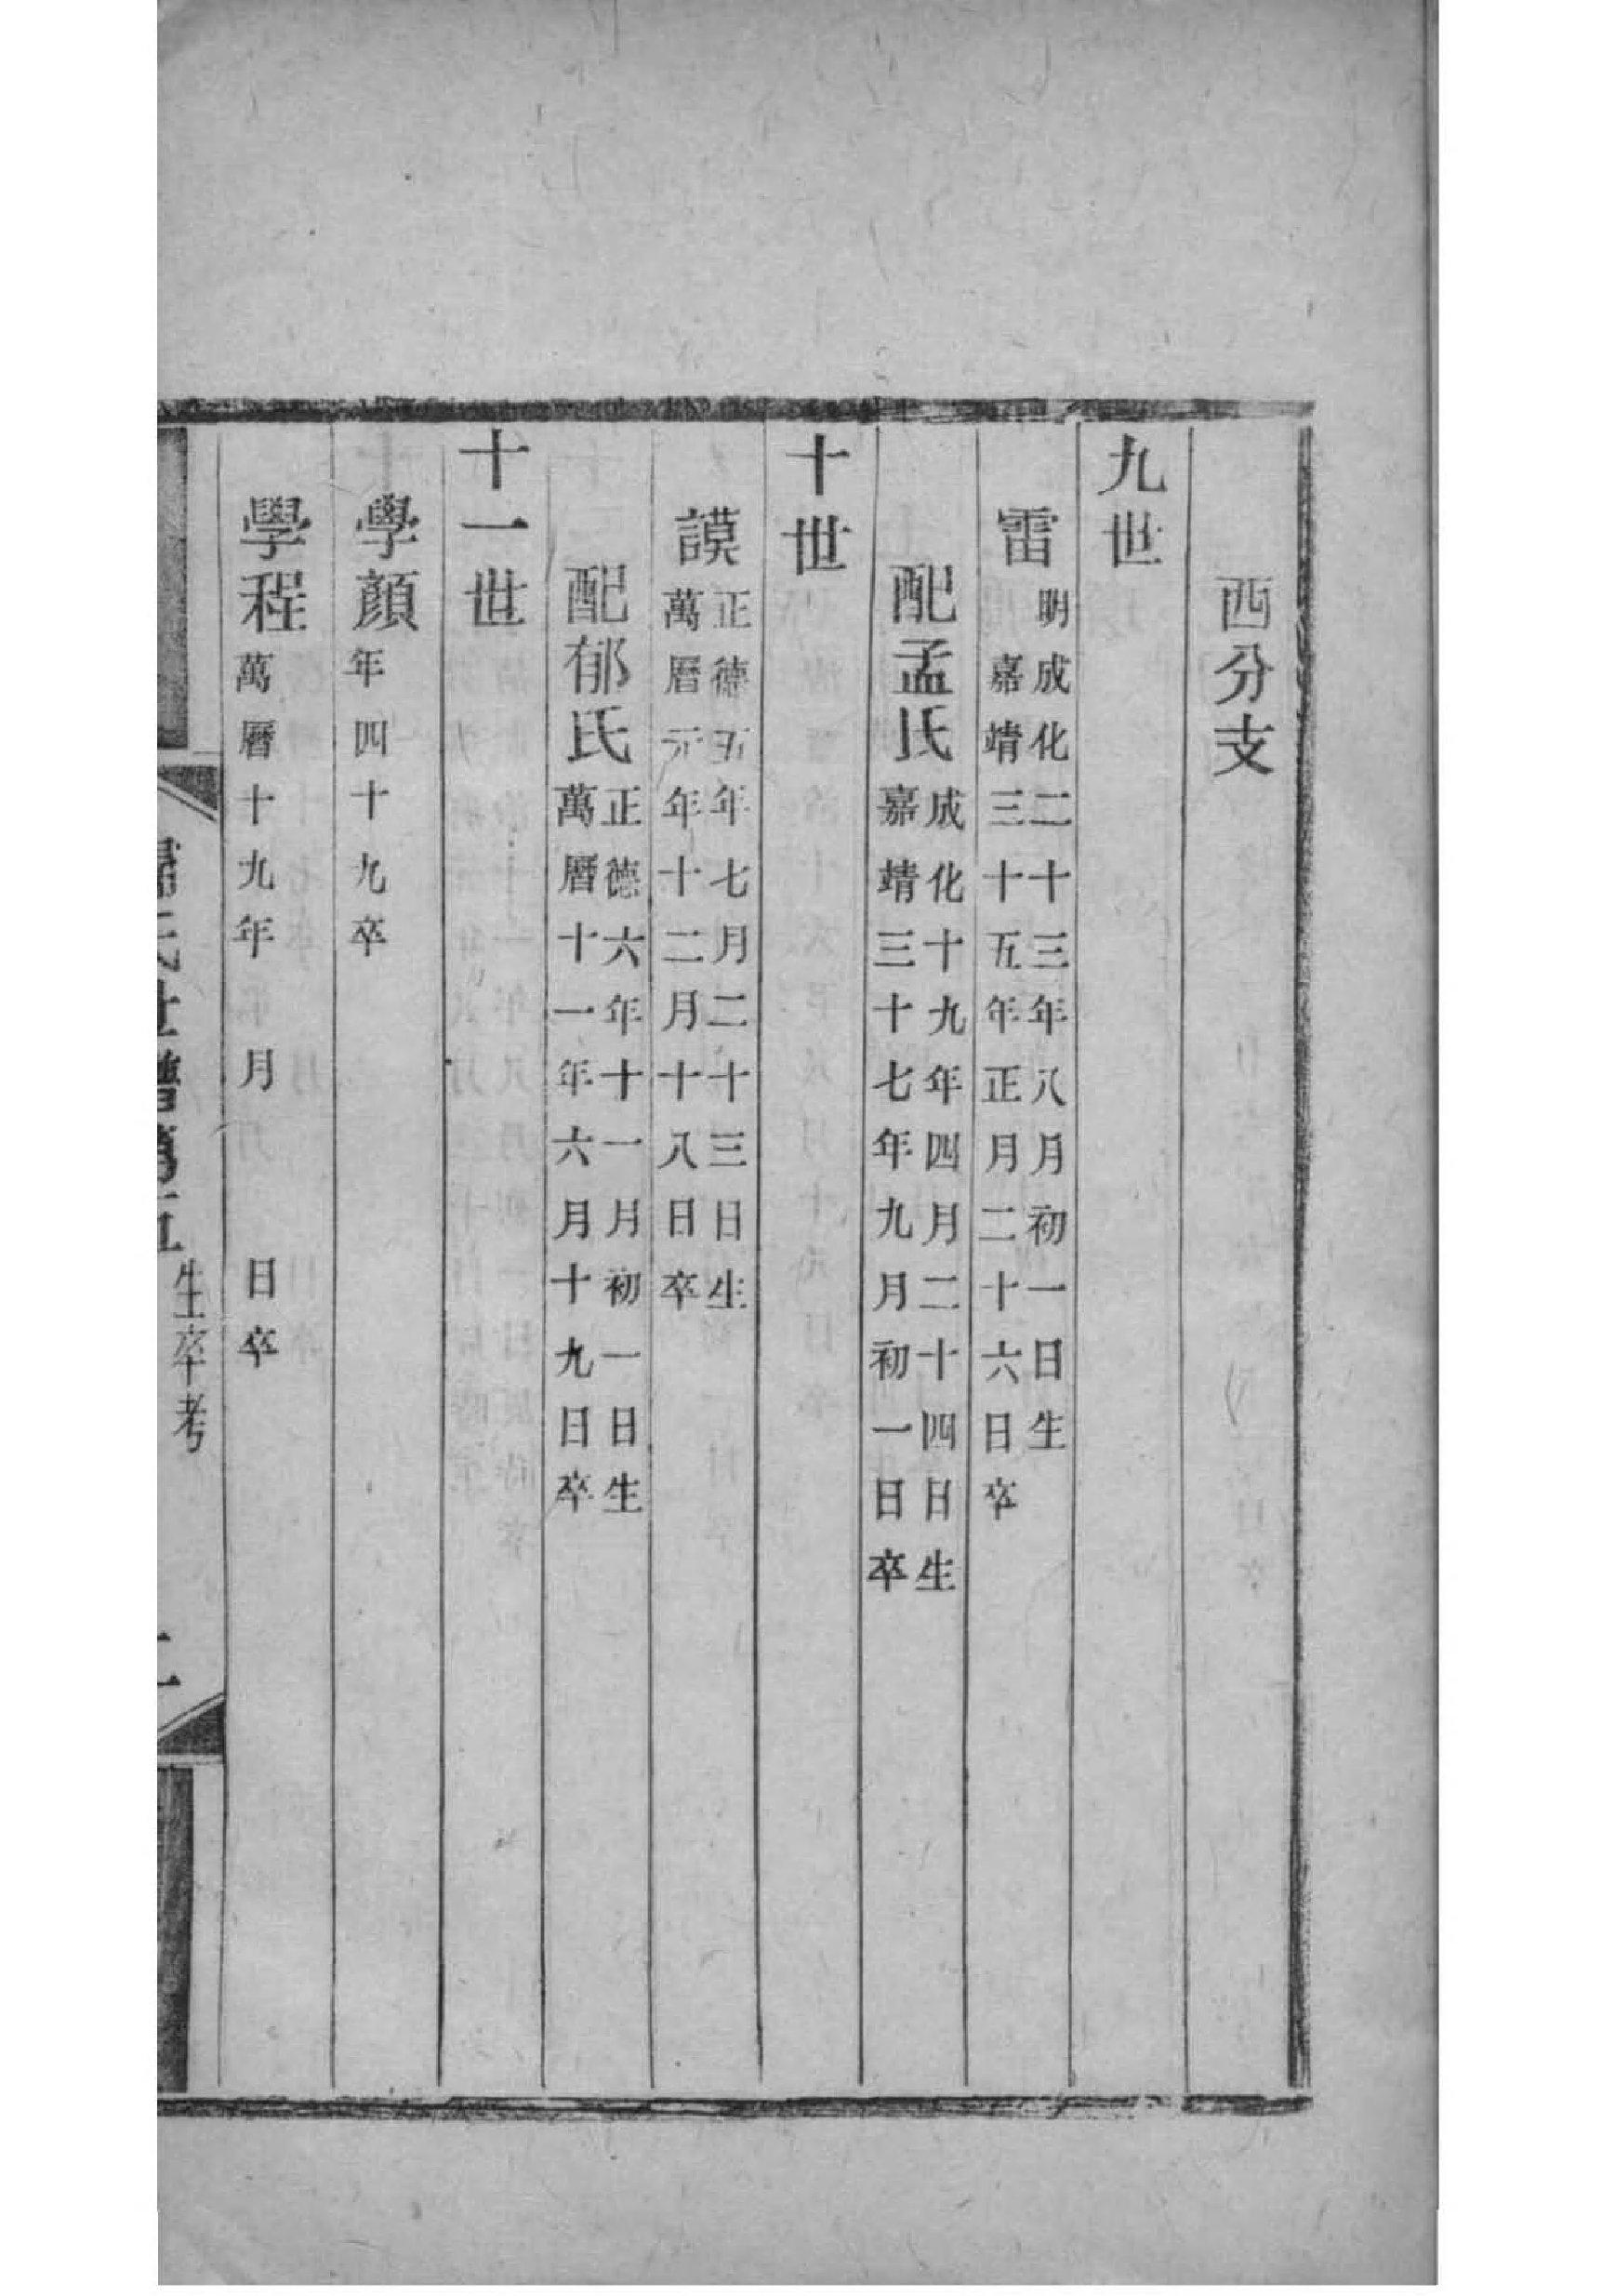 西分支
九世
雷 明成化二十三年八月初一日生
嘉靖三十五年正月二十六日卒
配孟氏 成化十九年四月二十四日生
嘉靖三十七年九月初一日卒
十世
謨 正德五年七月二十三日生
萬曆元年十二月十八日卒
配郁氏 正德六年十一月初一日生
萬曆十一年六月十九日卒
十一世
學顏 年四十九卒
學程 萬曆十九年 月 日卒
氏世譜 生卒考